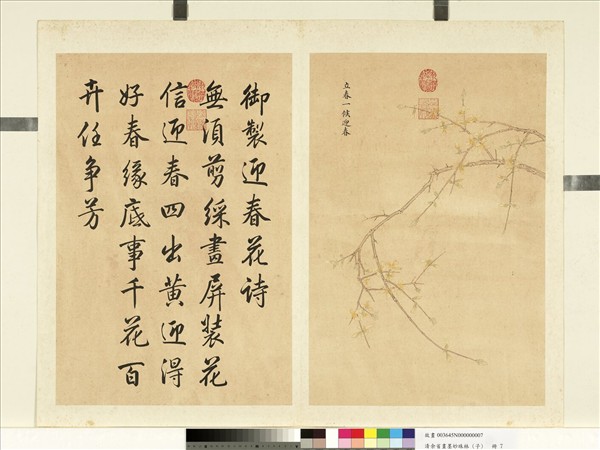 立春一候迎春
御製迎春花詩
無須剪綵畫屏裝花
信迎春四出黃迎得
好春緣底事千花百
卉任爭芳
故畫 003645N000000007
清余省畫墨妙珠林（子） 時 7